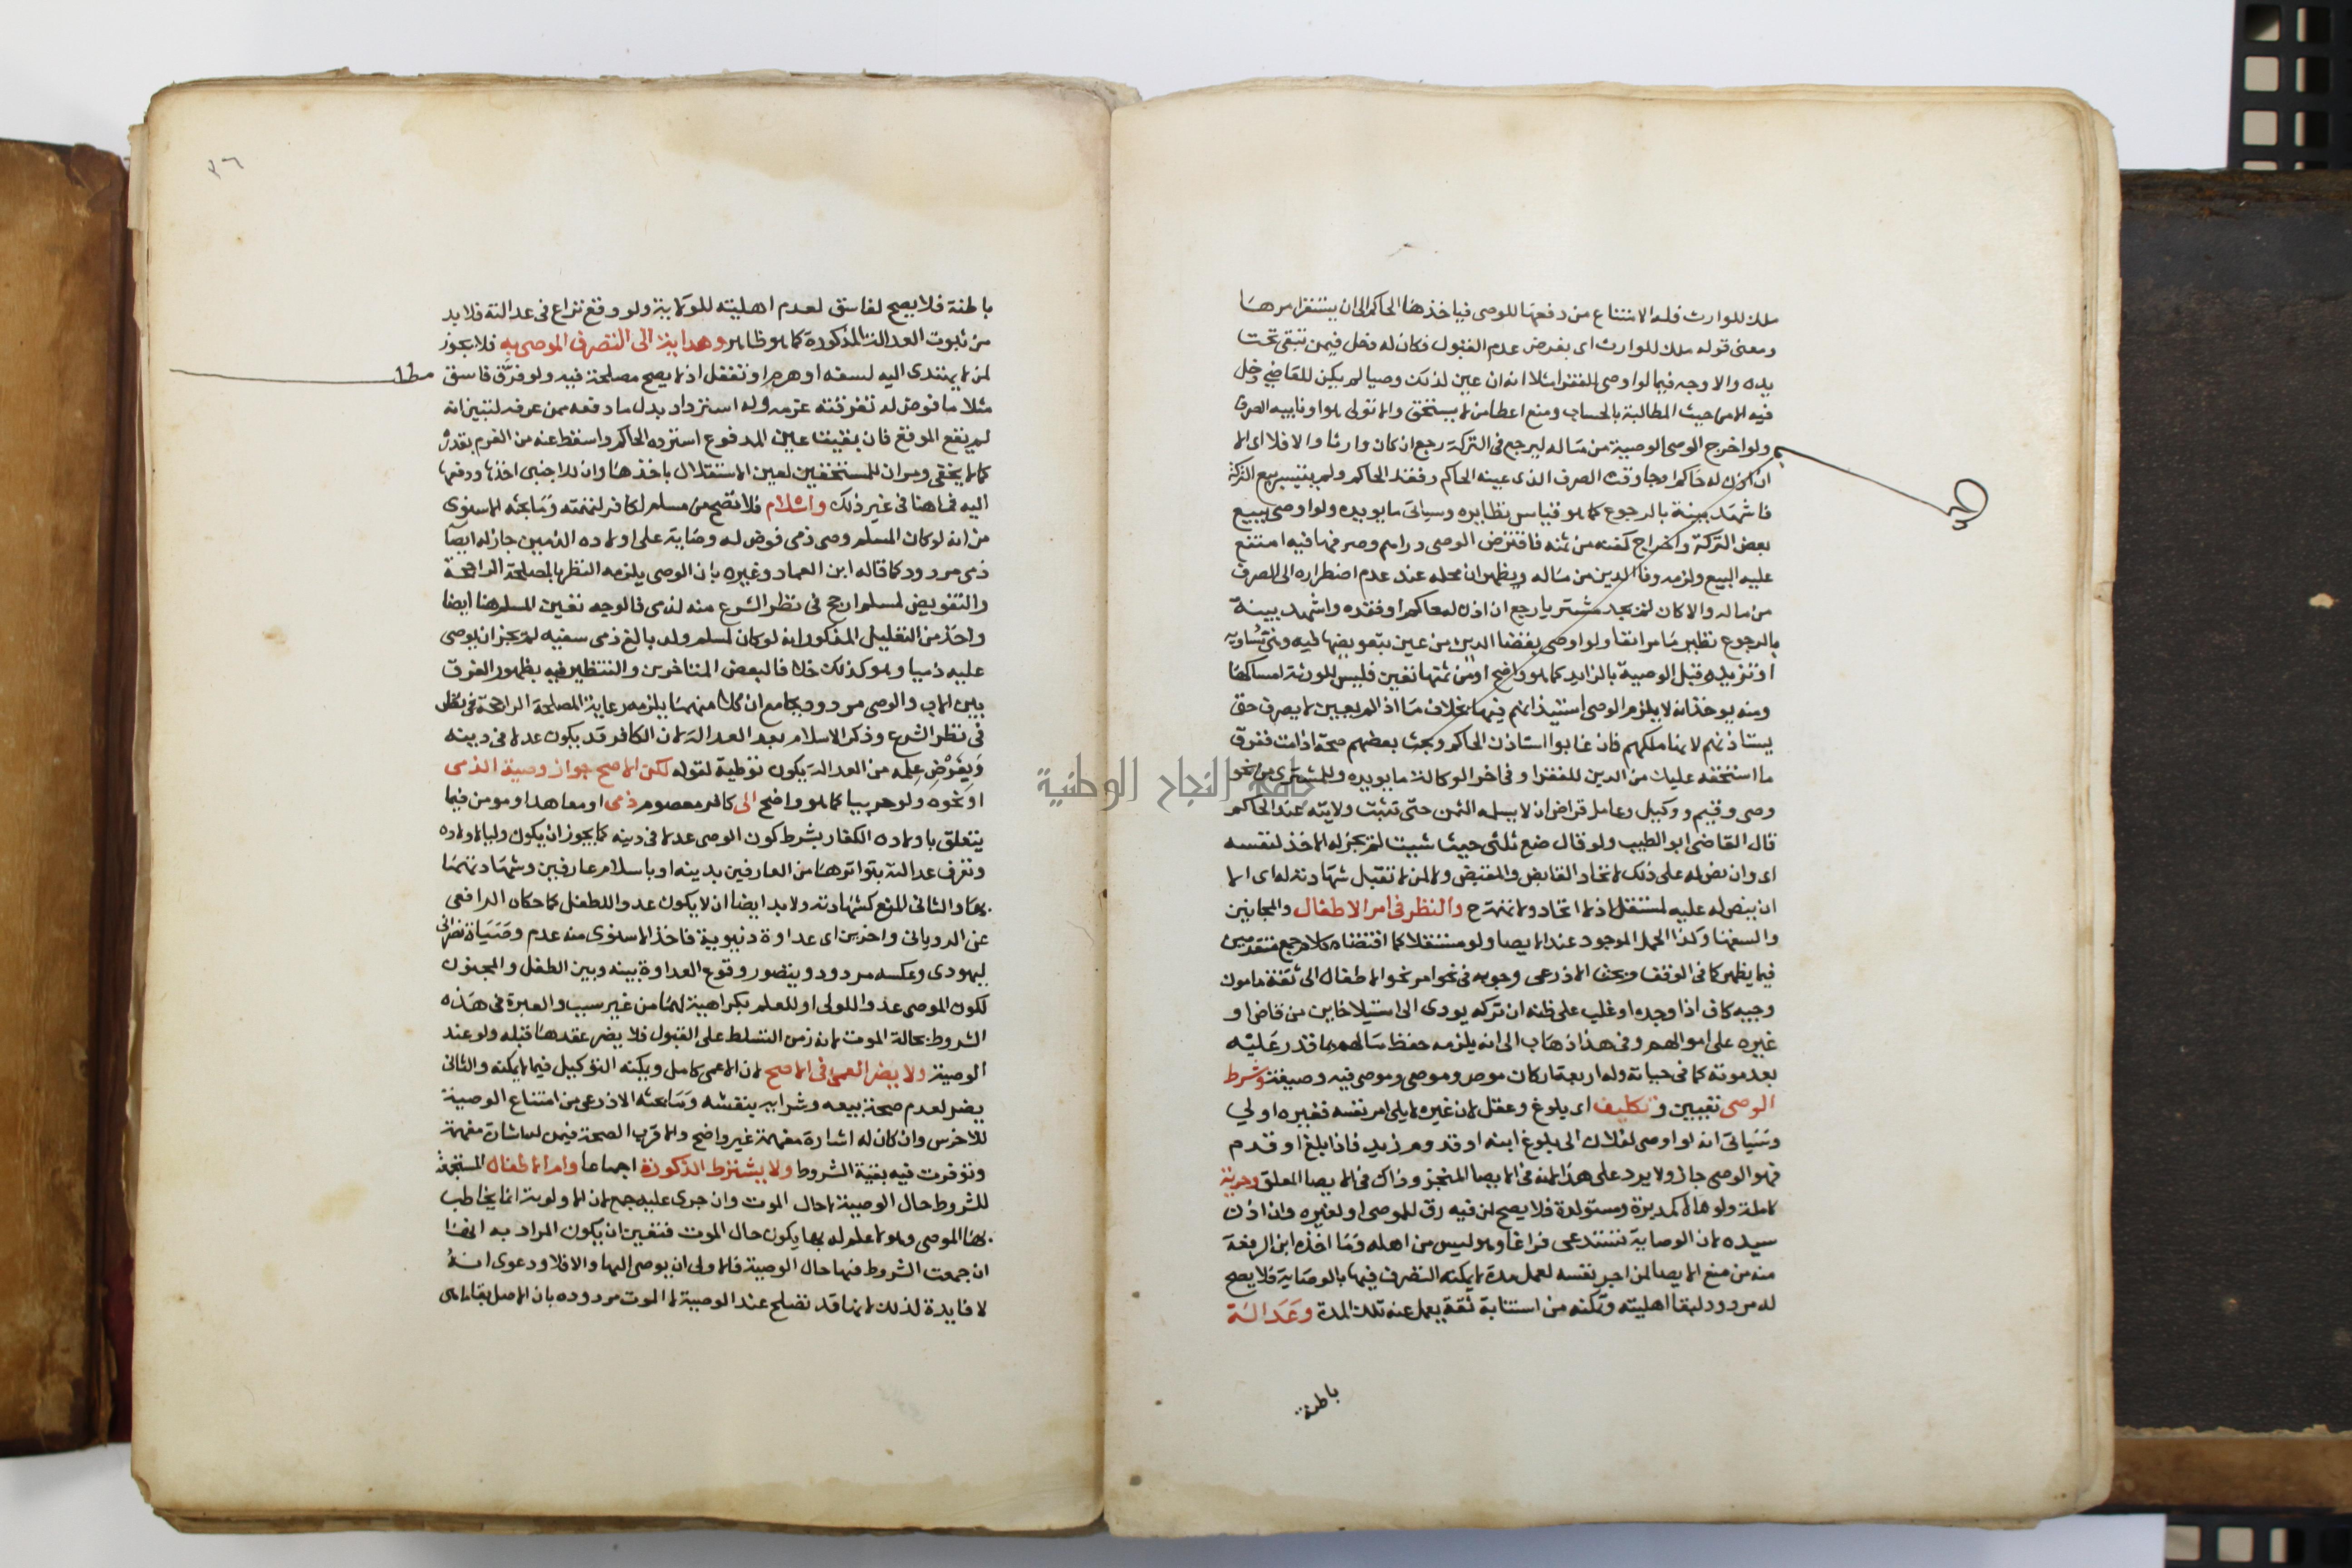 ملك للوارث فله الامتناع من دفعها للوصى فياخذها الحاكم الى ان يستقر امرها
ومعنى قوله ملك للوارث اى بفرض عدم القبول فكان له دخل فيمن تبقى تحت
يده والاوجه فيما لو اوصى للفقرا مثلا انه ان عين لذلك وصيا لم يكن للقاضى دخل
فيه الا من حيث المطالبة بالحساب ومنع اعطا من لا يستحق والا تولى هو او نايبه الصرف
ولو اخرج الوصى الوصية من ماله ليرجع فى التركة رجع ان كان وارثا والا فلا اى الا
ان اذن له حاكم او جا وقت الصرف الذى عينه الحاكم وفقد الحاكم ولم يتيسر بيع التركة
فاشهد ببينة بالرجوع كما هو قياس نظايره وسياتى ما يويده ولو اوصى ببيع
بعض التركة واخراج كفنه من ثمنه فاقترض الوصى دراهم وصرفها فيه امتنع
عليه البيع ولزمه وفا الدين من ماله ويظهر ان محله عند عدم اضطراره الى الصرف
من ماله والا كان لم يجد مشتريا رجع ان اذن له حاكم او فقده واشهد ببينة
بالرجوع نظير ما مر انفا ولو اوصى بقضا الدين من عين بتعويضها فيه وهى تساويه
او تزيد وقبل الوصية بالزايد كما هو واضح او من ثمنها تعين فليس للورثة امساكها
ومنه يوخذ انه لا يلزم الوصى استيذانهم فيها بخلاف ما اذا لم يعين لا يصرف حتى
يستاذنهم لانها ملكهم فان غابوا استاذن الحاكم وبحث بعضهم صحة اذا مت ففرق
ما استحقه عليك من الدين للفقرا وفى اخر الوكالة ما يويده وللمشترى من نحو
وصى وقيم ووكيل وعامل قراض ان لا يسلمه الثمن حتى تثبت ولايته عند الحاكم
قال القاضى ابو الطيب ولو قال ضع ثلثى حيث شيت لم يجز له الاخذ لنفسه
اى وان نص له على ذلك لاتحاد القابض والمقبض ولا لمن لا تقبل شهادته له اى الا
ان ينص له عليه لمستقل اذ لا اتحاد ولا تهمة ح والنظر فى امر الاطفال والمجانين
والسفها وكذا الحمل الموجود عند الايصا ولو مستقلا كما اقتضاه كلام جمع متقدمين
فيما يظهر كما فى الوقف وبحث الاذرعى وجوبه فى نحو امر نحو الاطفال الى ثقة مامون
وجيه كاف اذا وجده او غلب على ظنه ان تركه يودى الى استيلا خاين من قاض او
غيره على اموالهم وفى هذا ذهاب الى انه يلزمه حفظ مالهم بما قدر عليه
بعد موته كما فى حياته وله اربعة اركان موص وموصى وموصى فيه وصيغة وشرط
الوصى تعيين و تكليف اى بلوغ وعقل لان غيره لا يلى امر نفسه فغيره اولى
وسياتى انه لو اوصى لفلان الى بلوغ ابنه او قدوم زيد فاذا بلغ او قدم
فهو الوصى جاز ولا يرد على هذا لانه فى الايصا المنجز وذاك فى الايصا المعلق وحرية
كاملة ولو مالا كمدبرة ومستولدة فلا يصح لمن فيه رق للموصى او لغيره وان اذن
سيده لان الوصاية تستدعى فراغا وهو ليس من اهله وما اخذه ابن الرفعة
منه من منع الايصا لمن اجر نفسه لعمل مدة لا يمكنه التصرف فيها بالوصاية فلا يصح
له مردود لبقا اهليته وتمكنه من استنابة ثقة يعمل عنه تلك المدة وعدالة
باطنة
باطنة فلا يصح لفاسق لعدم اهليته للولاية ولو وقع نزاع فى عدالته فلا بد
من ثبوت العدالة المذكورة كما هو ظاهر وهداية الى التصرف الموصى به فلا يجوز
لمن لا يهتدى اليه لسفه او هرم او تغفل اذ لا يصح مصلحة فيه ولو فرق فاسق
مثلا ما فوض له تفرقته غرمه وله استرداد بدل ما دفعه ممن عرفه لتبين انه
لم يقع الموقع فان بقيت عين المدفوع استرده الحاكم واسقط عنه من الغرم بقدره
كما لا يخفى ومر ان للمستحقين لعين الاستقلال باخذها وان للاجنبى اخذها ودفعها
اليه فما هنا فى غير ذلك واسلام فلا تصح من مسلم لكافر لتهمته وما بحثه الاسنوى
من انه لو كان المسلم وصى ذمى فوض له وصاية على اولاده الذميين جاز له ايصآ
ذمى مردود كما قاله ابن العماد وغيره بان الوصى يلزمه النظر بالمصلحة الراجحة
والتفويض لمسلم ارجح فى نظر الشرع منه لذمى فالوجه تعين المسلم هنا ايضا
واخذ من التعليل المذكور انه لو كان لمسلم ولد بالغ ذمى سفيه لم يجز ان يوصى
عليه ذميا وهو كذلك خلافا لبعض المتاخرين والتنظير فيه بظهور الفرق
بين الاب والوصى مردود بجامع ان كلا منهما يلزمه رعاية المصلحة الراجحة فى نظر
فى نظر الشرع وذكر الاسلام بعد العدالة لان الكافر قد يكون عدلا فى دينه
وبفرض علمه من العدالة يكون توطية لقوله لكن الاصح جواز وصية الذمى
او نحوه ولو حربيا كما هو واضح الى كافر معصوم ذمى او معاهد او مومن فيما
يتعلق باولاده الكفار بشرط كون الوصى عدلا فى دينه كما يجوز ان يكون وليا لاولاده
وتعرف عدالته بتواترها من العارفين بدينه او باسلام عارفين وشهادتهما
بها والثانى المنع كشهادته ولا بد ايضا ان لا يكون عدوا للطفل كما حكاه الرافعى
عن الرويانى واخرين اى عداوة دنيوية فاخذ الاسنوى منه عدم وصاية نصرانى
ليهودى وعكسه مردود ويتصور وقوع العداوة بينه وبين الطفل والمجنون
لكون الموصى عدوا للولى او للعلم بكراهية لهما من غير سبب والعبرة فى هذه
الشروط بحالة الموت لانه زمن التسلط على القبول فلا يضر عقدها قبله ولو عند
الوصية ولا يضر العمى فى الاصح لان الاعمى كامل ويمكنه التوكيل فيما لا يمكنه والثانى
يضر لعدم صحة بيعه وشرايه بنفسه وما بحثه الاذرعى من امتناع الوصية
للاخرس وان كان له اشارة مفهمة غير واضح والاقرب الصحة فيمن له اشارة مفهمة
وتوفرت فيه بقية الشروط ولا يشترط الذكورة اجماعا وام الاطفال المستجمعة
للشروط حال الوصية لا حال الموت وان جرى عليه جمع لان الاولوية انما يخاطب
بها الموصى وهو لا علم له بما يكون حال الموت فتعين ان يكون المراد به انها
ان جمعت الشروط فيها حال الوصية فالاولى ان يوصى اليها والا فلا ودعوى انه
لا فايدة لذلك لانها قد تصلح عند الوصية لا الموت مردوده بان الاصل بقا ما هى
٣٦
جامعة النجاح الوطنية